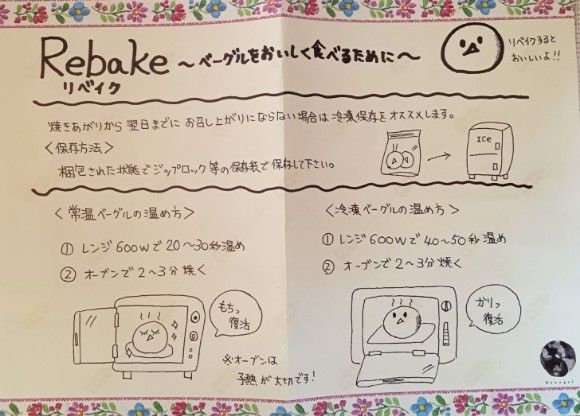 Rebake ～ベーグルをおいしく食べるために～
リベイク
リベイクすると
おいしいよ!!
焼きあがりから翌日までにお召し上がりにならない場合は冷凍保存をオススメします。
〈保存方法〉
梱包された状態でジップロック等の保存袋で保存して下さい。
ICE
〈常温ベーグルの温め方〉
① レンジ600Wで20～30秒温め
② オーブンで2～3分焼く
もちっ
復活
※オーブンは
予熱が大切です!
〈冷凍ベーグルの温め方〉
① レンジ600Wで40～50秒温め
② オーブンで2～3分焼く
かりっ
復活